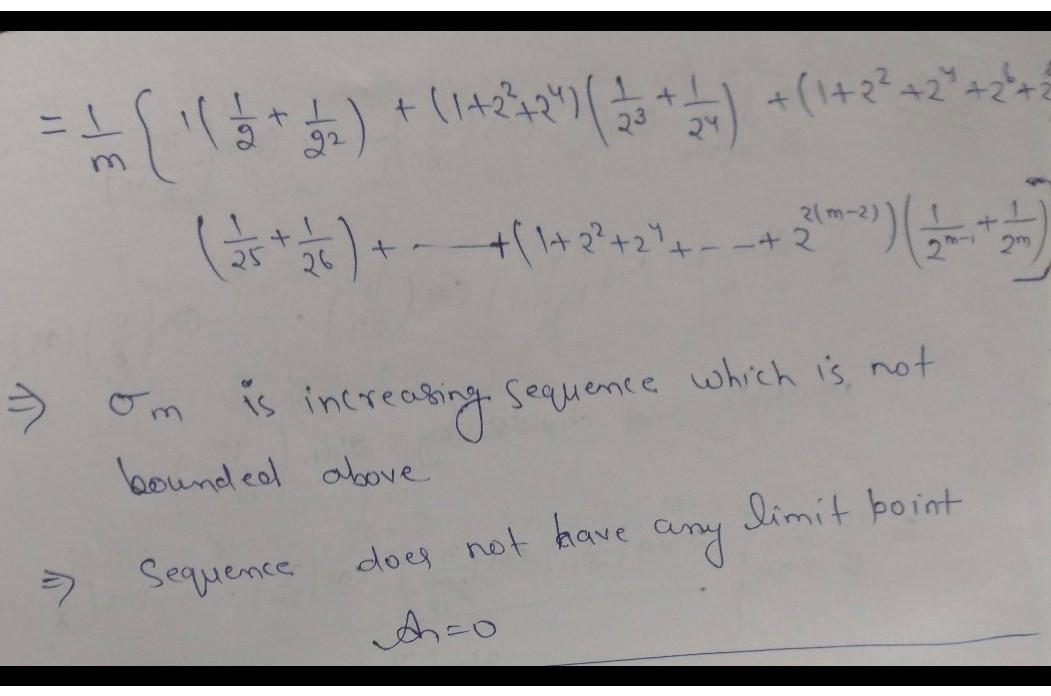 = 1/m { 1(1/2 + 1/2²) + (1+2²+2⁴)(1/2³ + 1/2⁴) + (1+2²+2⁴+2⁶+2
(1/25 + 1/26) + - — +(1+2²+2⁴+---+2^{2(m-2)})(1/2^{m-1} + 1/2^m)]
⇒ σm is increasing sequence which is not
bounded above
⇒ Sequence does not have any limit point
An=0